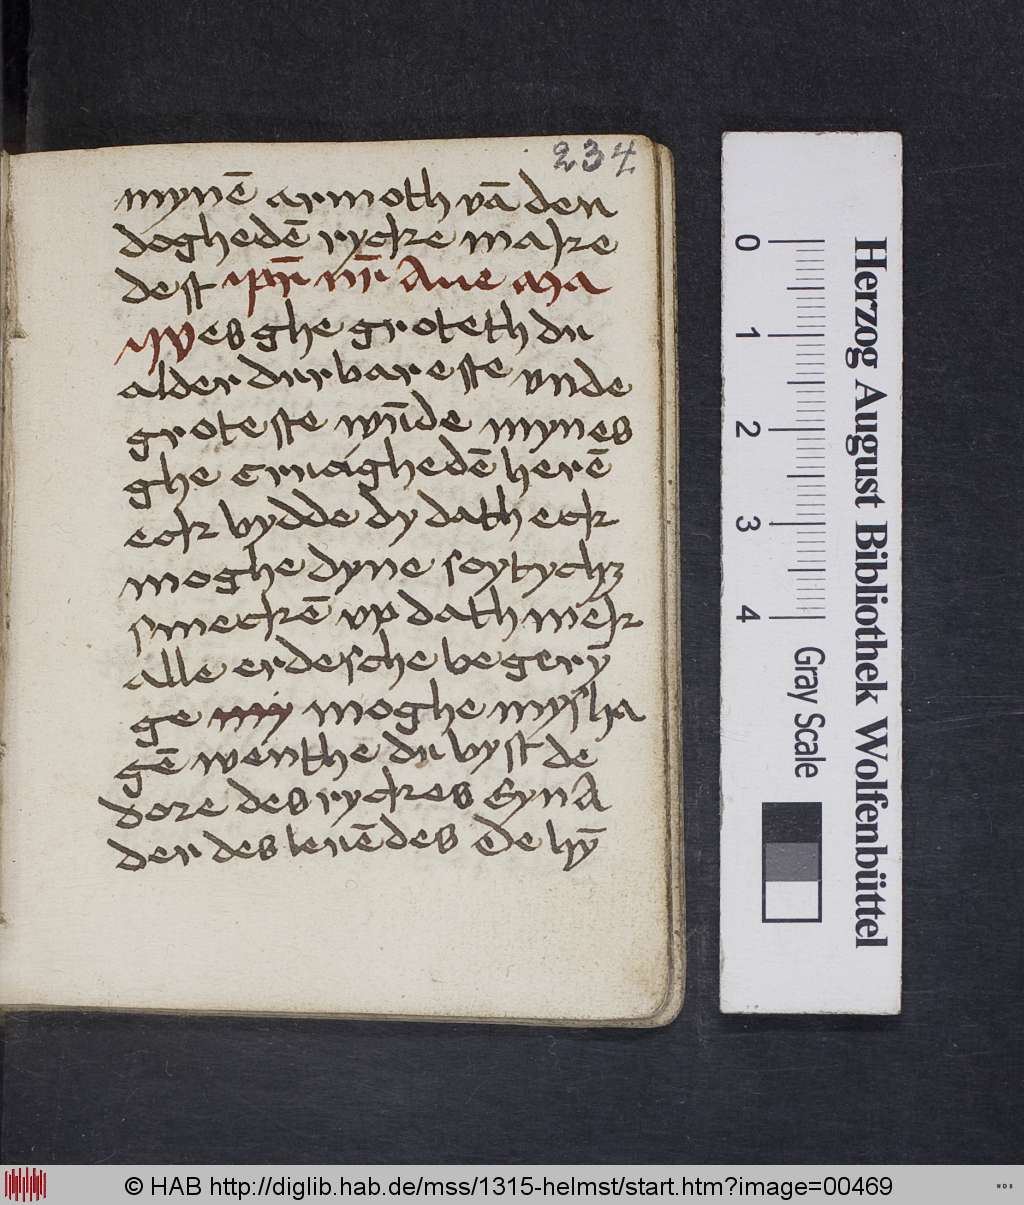 234
mynē armoth vā den
doghedē rycke make
dest ipr̄ nr̄ Aue ma
Wes ghe groteth du
alder durbareste vnde
groteste wn̄de mynes
ghe crucighedē herē
eck bydde dy dath eck
moghe dyne soytych
smeckē vp dath mek
alle erdesche begery
ge my moghe mysha
gē wenthe du byst de
dore des ryckes Eyn A
der des leuēdes De hȳ
Herzog August Bibliothek Wolfenbüttel
0 1 2 3 4 Gray Scale
© HAB http://diglib.hab.de/mss/1315-helmst/start.htm?image=00469